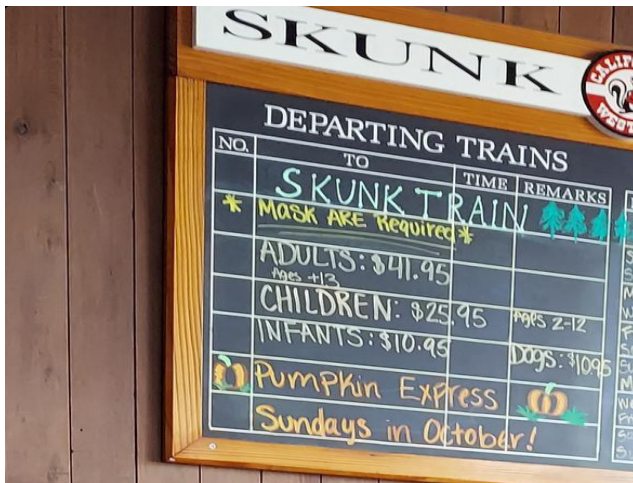 SKUNK
DEPARTING TRAINS
NO. TO TIME REMARKS
SKUNK TRAIN
* MASK ARE Required *
ADULTS: $41.95
Ages +13
CHILDREN: $25.95 Ages 2-12
INFANTS: $10.95 DOGS: $10.95
Pumpkin Express
Sundays in October!